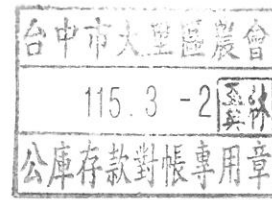 台中市大里區農會
115.3-2
公庫存款對帳專用章